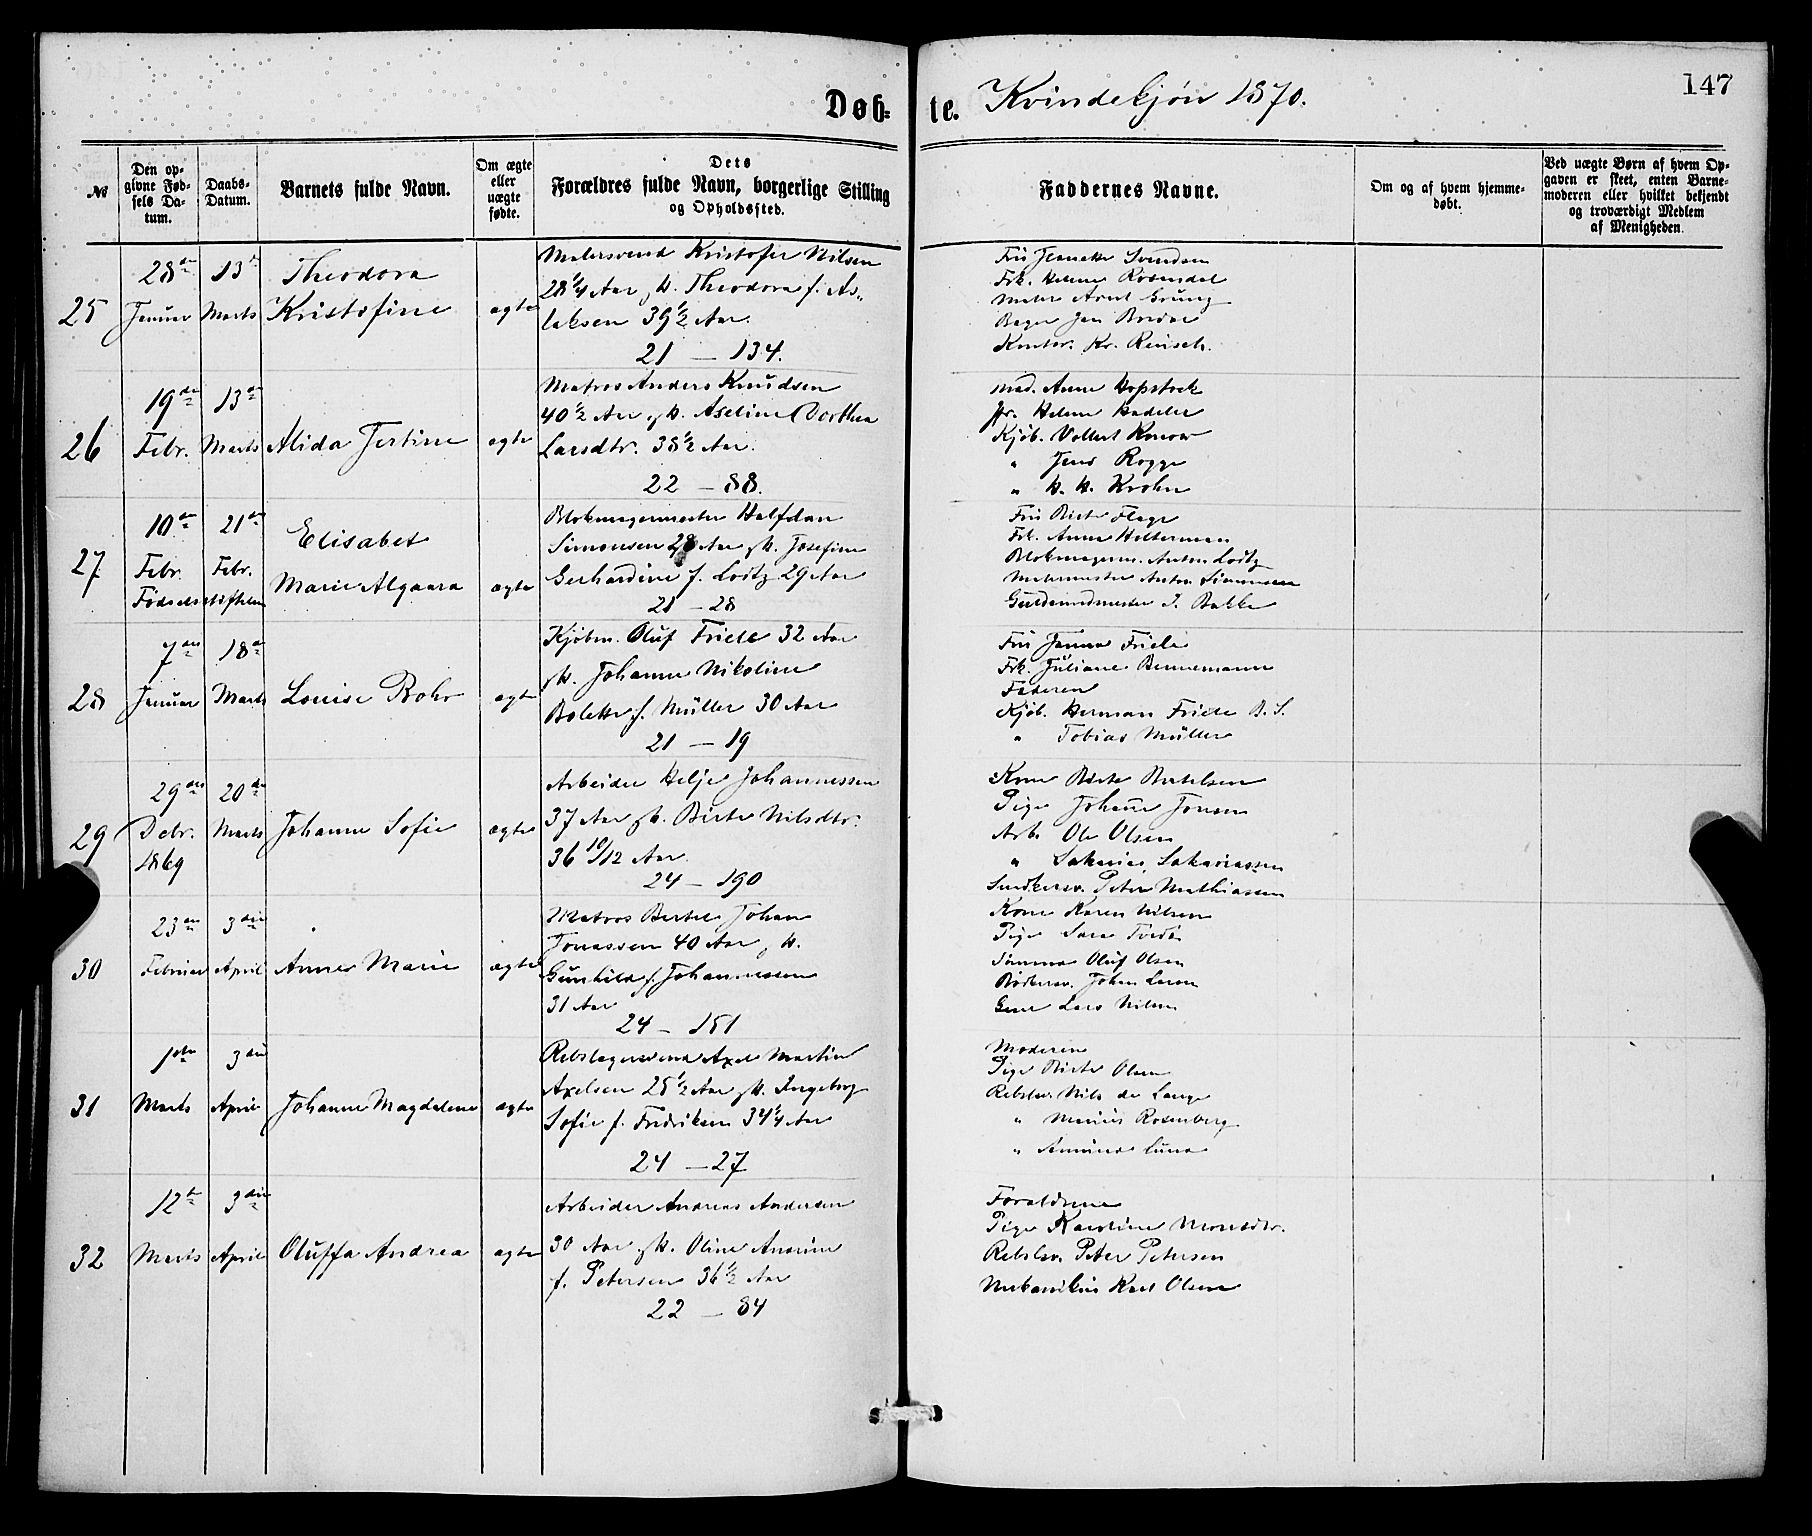 147
Døb- te. Kvindekjøn 1870.
№
Den op-
givne Fød-
sels Da-
tum.
Daabs-
Datum.
Barnets fulde Navn.
Om ægte
eller
uægte
fødte.
Dets
Forældres fulde Navn, borgerlige Stilling
og Opholdssted.
Faddernes Navne.
Om og af hvem hjemme-
døbt.
Ved uægte Børn af hvem Op-
gaven er skeet, enten Barne-
moderen eller hvilket bekjendt
og troværdigt Medlem
af Menigheden.
25
28de Januar
13de Marts
Theodora
Kristofine
ægte
Malersvend Kristofer Nilsen
28 1/4 Aar, H. Theodora f. As„
laksen 39 1/2 Aar.
21 — 134.
Fru Jeanette Svendsen
Frk. Helene Rosendal
Maler Arent Grung
Bager Jan Bredar
Kontor. Kr. Reusch.
26
19de Febr.
13de Marts
Alida Jertine
ægte
Matros Anders Knudsen
40 1/2 Aar, H. Aseline Dorthea
Larsdtr. 38 1/2 Aar.
22 — 88.
Mad. Anne Hopstock
Jfr. Helene Hadeler
Kjøb. Vollert Konow
" Jens Rogge
" H. H. Krohn
27
10de Febr.
21de Febr.
Fødselsstiftelsen
Elisabet
Marie Algaara
ægte
Blokmagermester Halfdan
Simonsen 28 Aar, H. Josefine
Gerhardine f. Loitz 29 Aar
21 — 28
Fru Birte Flage
Frk. Anna Halterman
Blokmagerm. Anton Loitz
Malermester Anton Simonsen
Guldsmedmester J. Bakke
28
7de Januar
18de Marts
Louise Rohr
ægte
Kjøbm. Oluf Friele 32 Aar
H. Johanne Nikoline
Bolette f. Müller 30 Aar
21 — 19
Fru Janna Friele
Frk. Juliane Bennemann
Faderen
Kjøb. Herman Friele B. S.
" Tobias Müller
29
29de Debr. 1869
20de Marts
Johanne Sofie
ægte
Arbeider Helje Johannessen
37 Aar, H. Birte Nilsdtr.
36 10/12 Aar.
24 — 190
Kone Birte Bertelsen
Pige Johanne Jonsen
Arb. Ole Olsen
" Sakarias Sakariassen
Snedkersv. Peter Mathiassen
30
23de Februar
3die April
Anne Marie
ægte
Matros Bertel Johan
Jonassen 40 Aar, H.
Gunhild f. Johannessen
31 Aar
24 — 151
Kone Karen Nilsen
Pige Sara
Sømand Oluf Olsen
Bødkersv. Johan Larsen
Lars Nilsen
31
1ste Marts
3die April
Johanne Magdalene
ægte
Rebslagersvend Axel Martin
Axelsen 25 1/2 Aar, H. Ingeborg
Sofie f. Fredriksen 34 1/4 Aar
24 — 27
Moderen
Pige Birte Olsen
Rebslsv. Nils de Lange
" Marius Rosenberg
32
12te Marts
3die April
Oluffa Andrea
ægte
Arbeider Andreas Andersen
30 Aar, H. Oline Andrine
f. Petersen 36 1/2 Aar
22 — 84
Forældrene
Pige Karoline Monsdtr.
Rebslsv. Peter Petersen
Mekanikus Karl Olsen